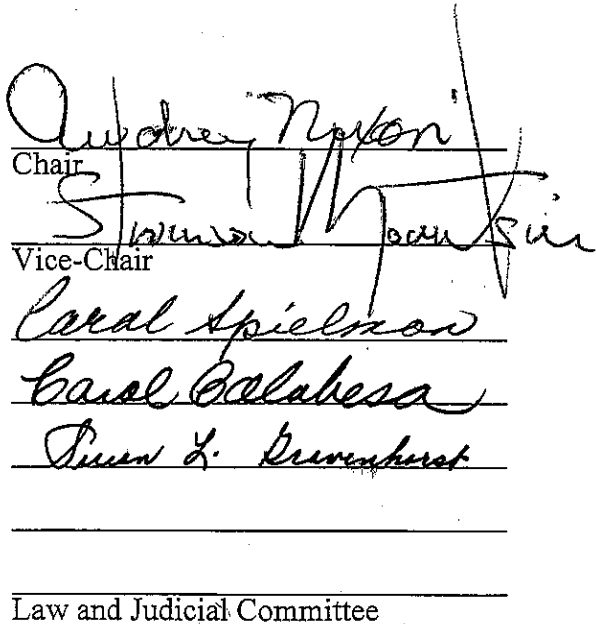 Audrey Nixon
Chair
Stevenson Mountsier
Vice-Chair
Carol Spielman
Carol Calabresa
Susan L. Gravenhorst
Law and Judicial Committee